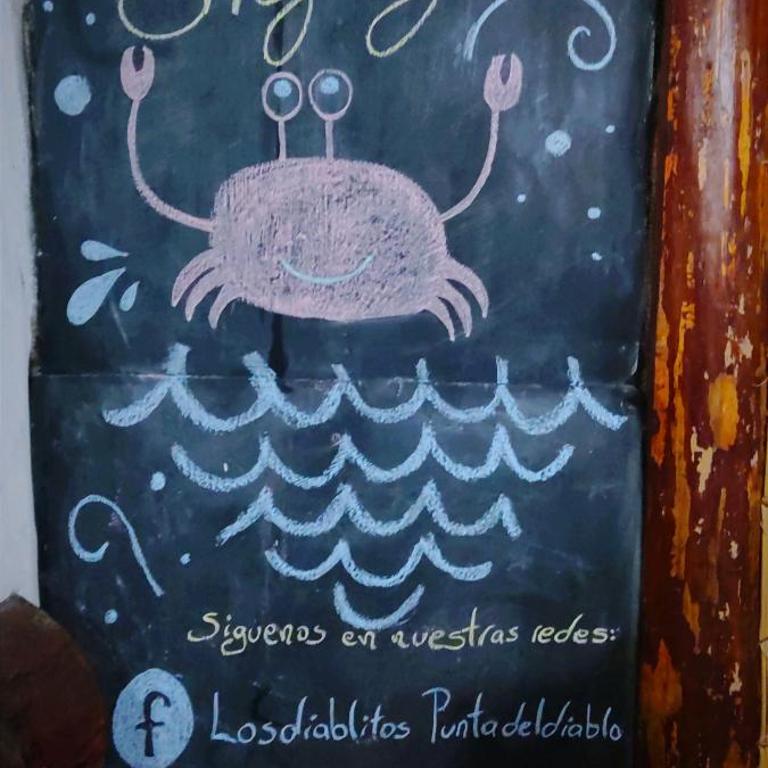 Siguenos en nuestras redes:
f Losdiablitos Puntadeldiablo